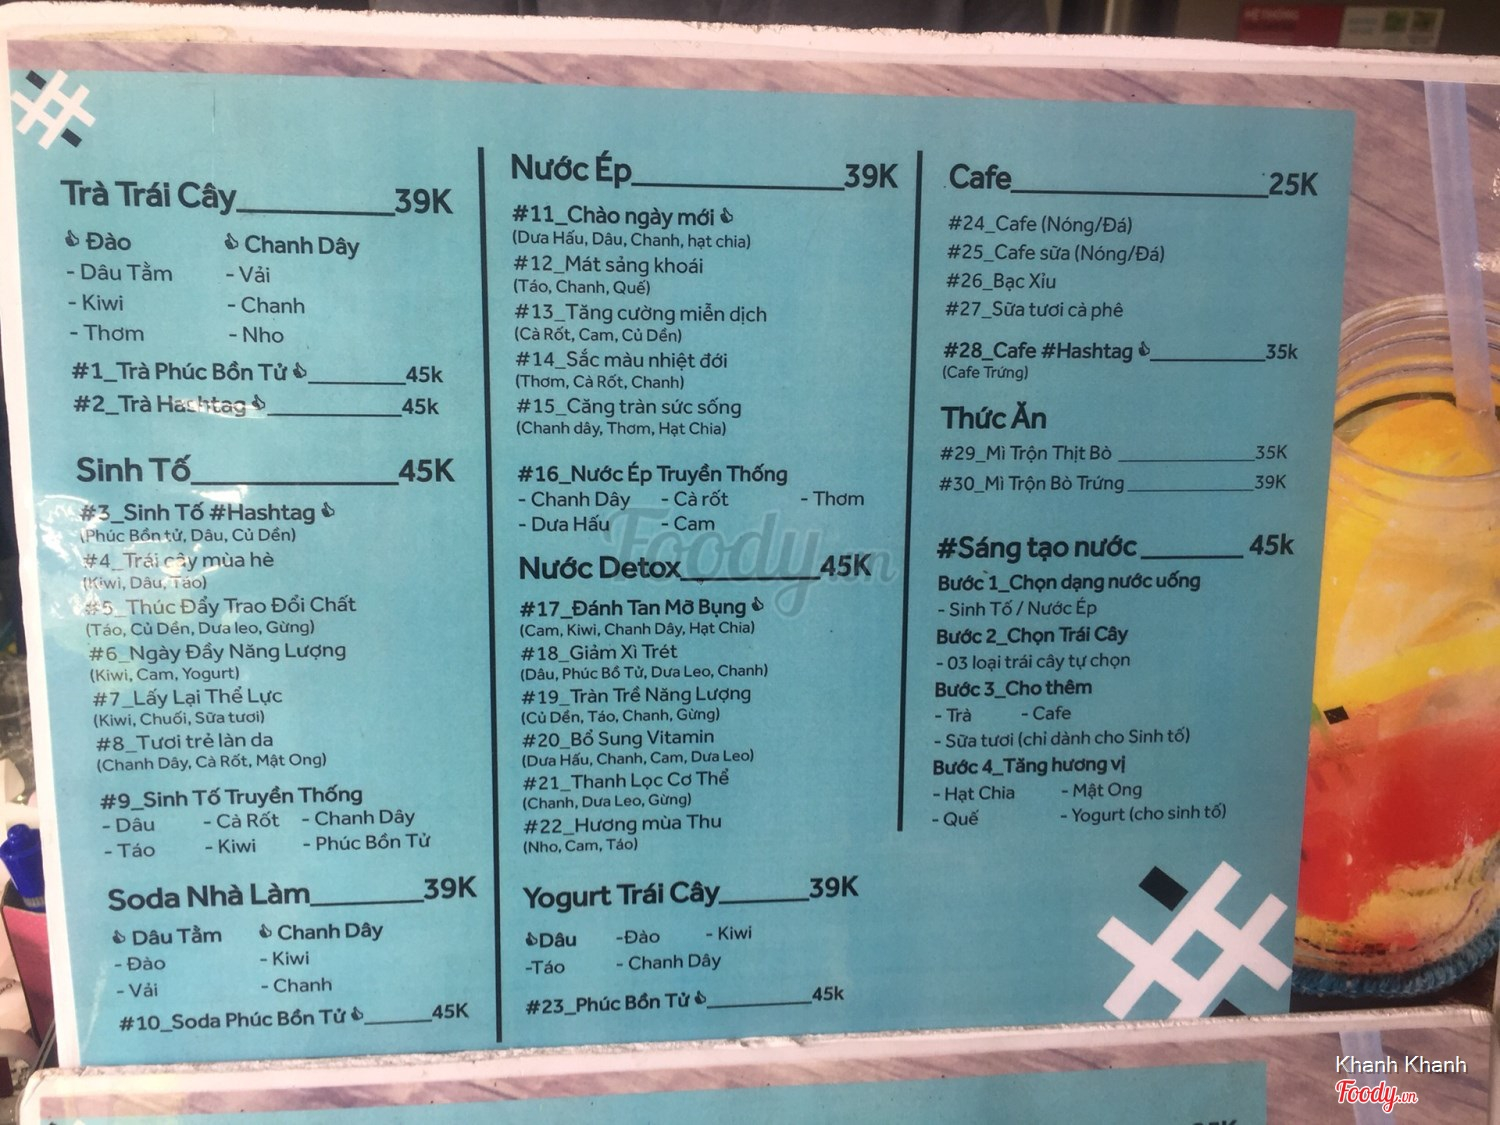 Trà Trái Cây 39K
👍 Đào 👍 Chanh Dây
- Dâu Tằm - Vải
- Kiwi - Chanh
- Thơm - Nho
#1_Trà Phúc Bồn Tử 👍 45k
#2_Trà Hashtag 👍 45k
Sinh Tố 45K
#3_Sinh Tố #Hashtag 👍
(Phúc Bồn tử, Dâu, Củ Dền)
#4_Trái cây mùa hè
(Kiwi, Dâu, Táo)
#5_Thúc Đẩy Trao Đổi Chất
(Táo, Củ Dền, Dưa leo, Gừng)
#6_Ngày Đầy Năng Lượng
(Kiwi, Cam, Yogurt)
#7_Lấy Lại Thể Lực
(Kiwi, Chuối, Sữa tươi)
#8_Tươi trẻ làn da
(Chanh Dây, Cà Rốt, Mật Ong)
#9_Sinh Tố Truyền Thống
- Dâu - Cà Rốt - Chanh Dây
- Táo - Kiwi - Phúc Bồn Tử
Soda Nhà Làm 39K
👍 Dâu Tằm 👍 Chanh Dây
- Đào - Kiwi
- Vải - Chanh
#10_Soda Phúc Bồn Tử 👍 45K
Nước Ép 39K
#11_Chào ngày mới 👍
(Dưa Hấu, Dâu, Chanh, hạt chia)
#12_Mát sảng khoái
(Táo, Chanh, Quế)
#13_Tăng cường miễn dịch
(Cà Rốt, Cam, Củ Dền)
#14_Sắc màu nhiệt đới
(Thơm, Cà Rốt, Chanh)
#15_Căng tràn sức sống
(Chanh dây, Thơm, Hạt Chia)
#16_Nước Ép Truyền Thống
- Chanh Dây - Cà rốt - Thơm
- Dưa Hấu - Cam
Nước Detox 45K
#17_Đánh Tan Mỡ Bụng 👍
(Cam, Kiwi, Chanh Dây, Hạt Chia)
#18_Giảm Xì Trét
(Dâu, Phúc Bồ Tử, Dưa Leo, Chanh)
#19_Tràn Trề Năng Lượng
(Củ Dền, Táo, Chanh, Gừng)
#20_Bổ Sung Vitamin
(Dưa Hấu, Chanh, Cam, Dưa Leo)
#21_Thanh Lọc Cơ Thể
(Chanh, Dưa Leo, Gừng)
#22_Hương mùa Thu
(Nho, Cam, Táo)
Yogurt Trái Cây 39K
👍Dâu -Đào - Kiwi
-Táo - Chanh Dây
#23_Phúc Bồn Tử 👍 45k
Cafe 25K
#24_Cafe (Nóng/Đá)
#25_Cafe sữa (Nóng/Đá)
#26_Bạc Xỉu
#27_Sữa tươi cà phê
#28_Cafe #Hashtag 👍 35k
(Cafe Trứng)
Thức Ăn
#29_Mì Trộn Thịt Bò 35K
#30_Mì Trộn Bò Trứng 39K
#Sáng tạo nước 45k
Bước 1_Chọn dạng nước uống
- Sinh Tố / Nước Ép
Bước 2_Chọn Trái Cây
- 03 loại trái cây tự chọn
Bước 3_Cho thêm
- Trà - Cafe
- Sữa tươi (chỉ dành cho Sinh tố)
Bước 4_Tăng hương vị
- Hạt Chia - Mật Ong
- Quế - Yogurt (cho sinh tố)
Foody.vn
Khanh Khanh
Foody.vn